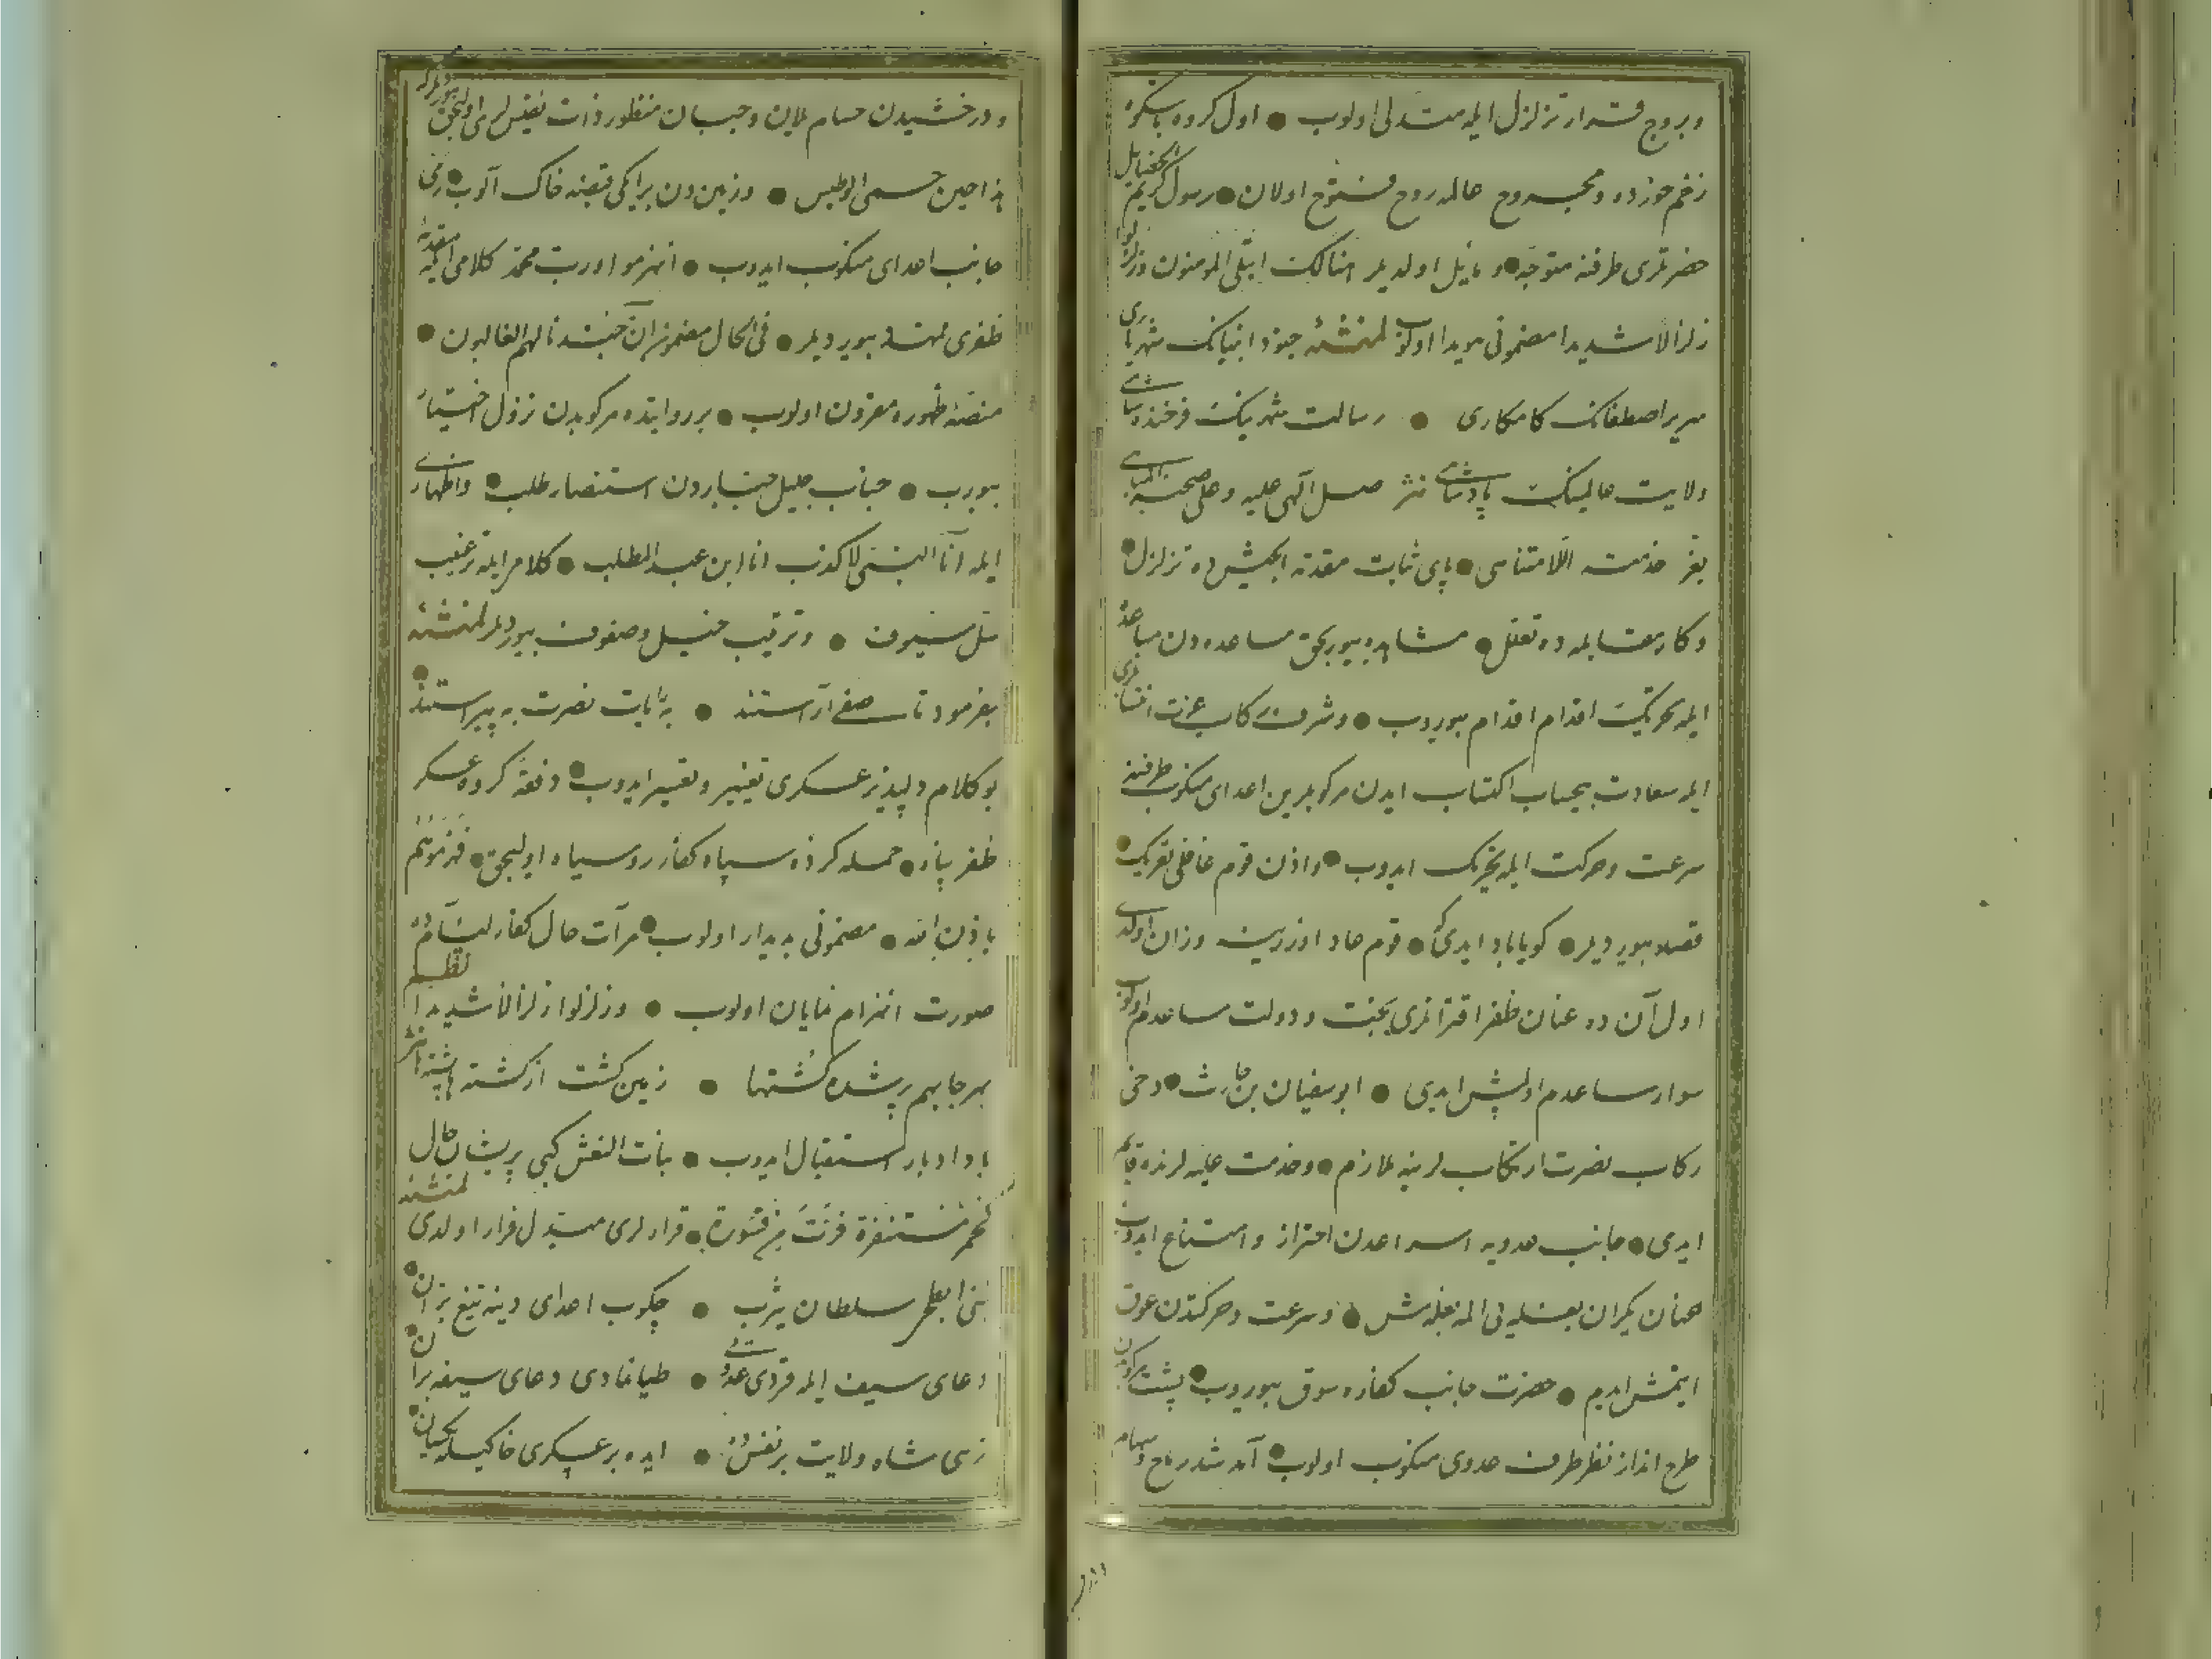 وبروج قرار تزلزل ايله متدلی اولوب ● اول كروه باشكوه
زخم خورده ومجروح حالله روح مفتوح اولان ● رسول كريم
حضرتلری طرفنه متوجه ● ومايل اولديلر هنالك ابتلی المومنون وزلزلوا
زلزالا شديدا مضمونی هويدا اولوب لمنشئه جنود انبيانك شهرياری
سرير اصطفانك كامكاری ● رسالت شهرينك فرخنده شاهی
ولايت عالمينك پادشاهی نثر صلی الهی عليه وعلی صحبه
خدمت اللامتناهی ● پای ثابت مقدمة الجيش ده تزلزل ●
وكار مقابله ده تعلل ● مشاهده بيوريجق مساعده دن مباعده
ايله تحريك اقدام اقدام بيوروب ● وشرف ركاب عزت
ايله سعادت بيحساب اكتساب ايدن مركوبلرين اعدای منكوب طرفنه
سرعت وحركت ايله تحريك ايدوب ● واذن قوم غافلی تفريك ●
قصد بيورديلر ● كويا باد ايدی كه ● قوم عاد اوزرينه وزان اولدی
اول آن ده عنان ظفر اقترانلری بخت ودولت مساعدم اولوب
سوار ساعدم اولمش ايدی ● ابو سفيان بن حارث ● دخی
ركاب نصرت ارتكابلرينه ملازم ● وخدمت عليه لرنده قايم
ايدی ● جانب عدويه اسراعدن احتراز وامتناع ايدوب
عنان يكران بغله يی المه بغلمش ● وسرعت وحركتدن عوق
ايتمش ايدم ● حضرت جانب كفاره سوق بيوروب ●
طرح انداز نظر طرف عدوی منكوب اولوب ● آمد شد رماح وسهام
ودرخشيدن حسام ملاين وجبان منظور ذات نفيسلری اوليجق بيورديلر كه
هذا حين حمی الوطيس ● وزمين دن بر ايكی قبضه خاك آلوب ● رمی
جانب اعدای منكوب ايدوب ● انهزموا ورب محمد كلامی ايله
ظفری بيورديلر ● فی الحال مضمون ان جندنا لهم الغالبون ●
منصۀ ظهوره مقرون اولوب ● بر روايتده مركوبدن نزول اختيار
بيورب ● جناب جليل جباردن استنصار طلب ● واظهار
ايله انا النبی لا كذب انا ابن عبد المطلب ● كلامر ايله ترغيب
سل سيوف ● وترتيب خيل وصفوف بيورديلر لمنشئه
بفرمود تا صف آراستند ● به رايات نصرت به پيراستند ●
بو كلام دلپذير عسكری تغيير وتعيير ايدوب ● دفعة كروه عسكر
ظفر پناه ● حمله كرده سپاه كفار روسياه اوليجق ● فهزموهم
باذن الله ● مضمونی پديدار اولوب ● مرآت حال كفار لئامده
صورت انهزام نمايان اولوب ● وزلزلوا زلزالا شديدا نظم
بهر جا بهم بر شده كشتها ● زمين كشت از كشته پشتها نثر
باد ادبار استقبال ايدوب ● بنات النعش كبی پريشان حال
كحمر مستنفرة فرت من قسورة ● قرارلری مبتدل فرار اولدی لمنشئه
نبی ابطحی سلطان يثرب ● چكوب اعدای دينه تيغ بران ●
دعای سيف ايله قردی عدوی ● طيانمادی دعای سيفه بران ●
زهی شاه ولايت بر نفسده ● ايده بر عسكری خاكيله يكسان ●